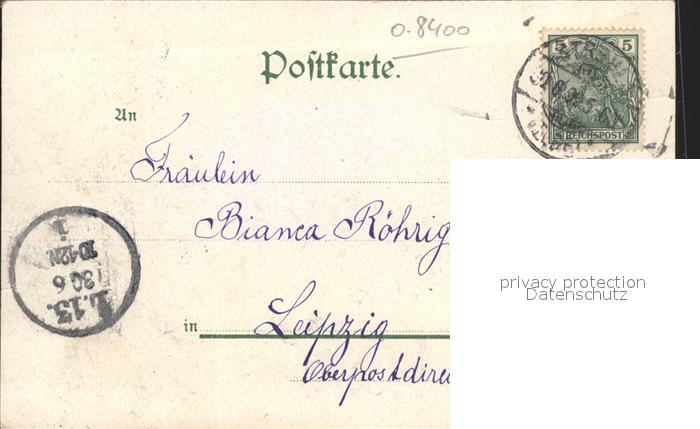 0-8400
Postkarte.
5 5
REICHSPOST
An
Fräulein
Bianca Röhrig
privacy protection
Datenschutz
L.13.
30 6
10-12N
1.
in Leipzig
Oberpostdirec